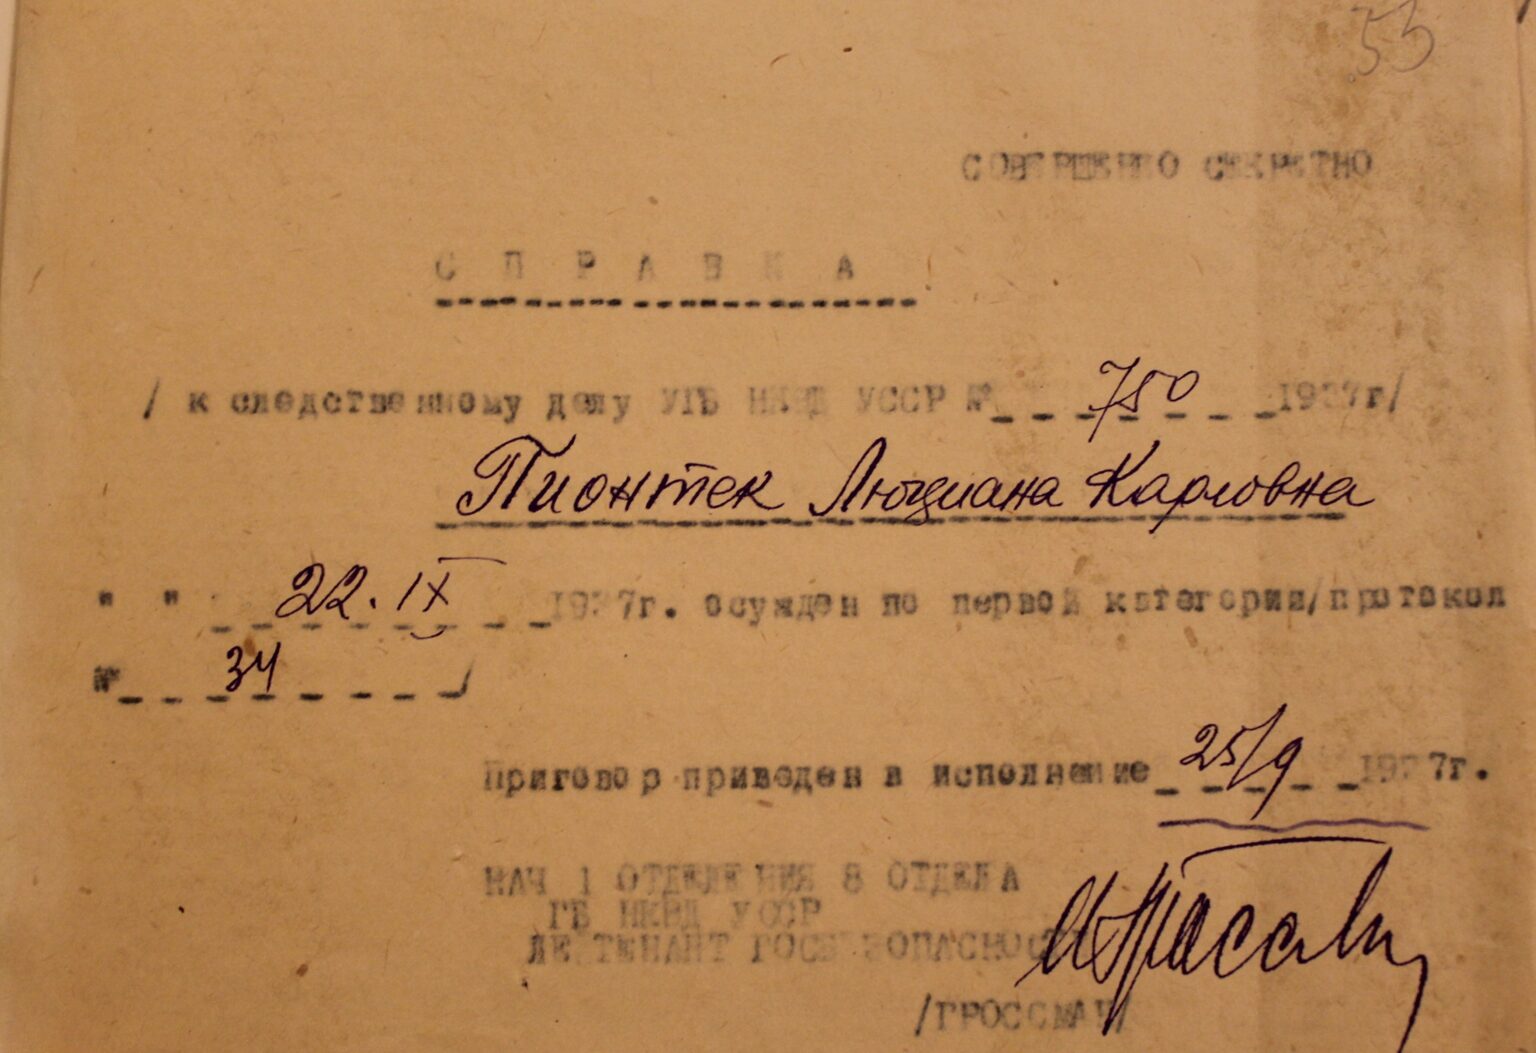 53
СОВЕРШЕННО СЕКРЕТНО
С П Р А В К А
/ к следственному делу УГБ НКВД УССР № 750 1937г/
Пионтек Люциана Карловна
" " 22. IX 1937г. осужден по первой категории/протокол
№ 34 /
Приговор приведен в исполнение 25/9 1937г.
НАЧ 1 ОТДЕЛЕНИЯ 8 ОТДЕЛА
ГБ НКВД УССР
ЛЕЙТЕНАНТ ГОСБЕЗОПАСНОСТИ
/ГРОССМАН/